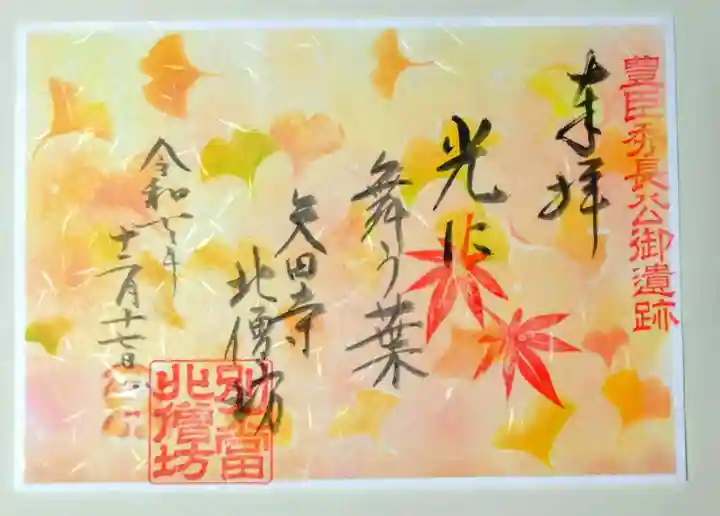 豊臣秀長公御遺跡
奉拝
光に
舞う葉
矢田寺
北僧坊
令和七年
十二月十七日
別當
北僧坊